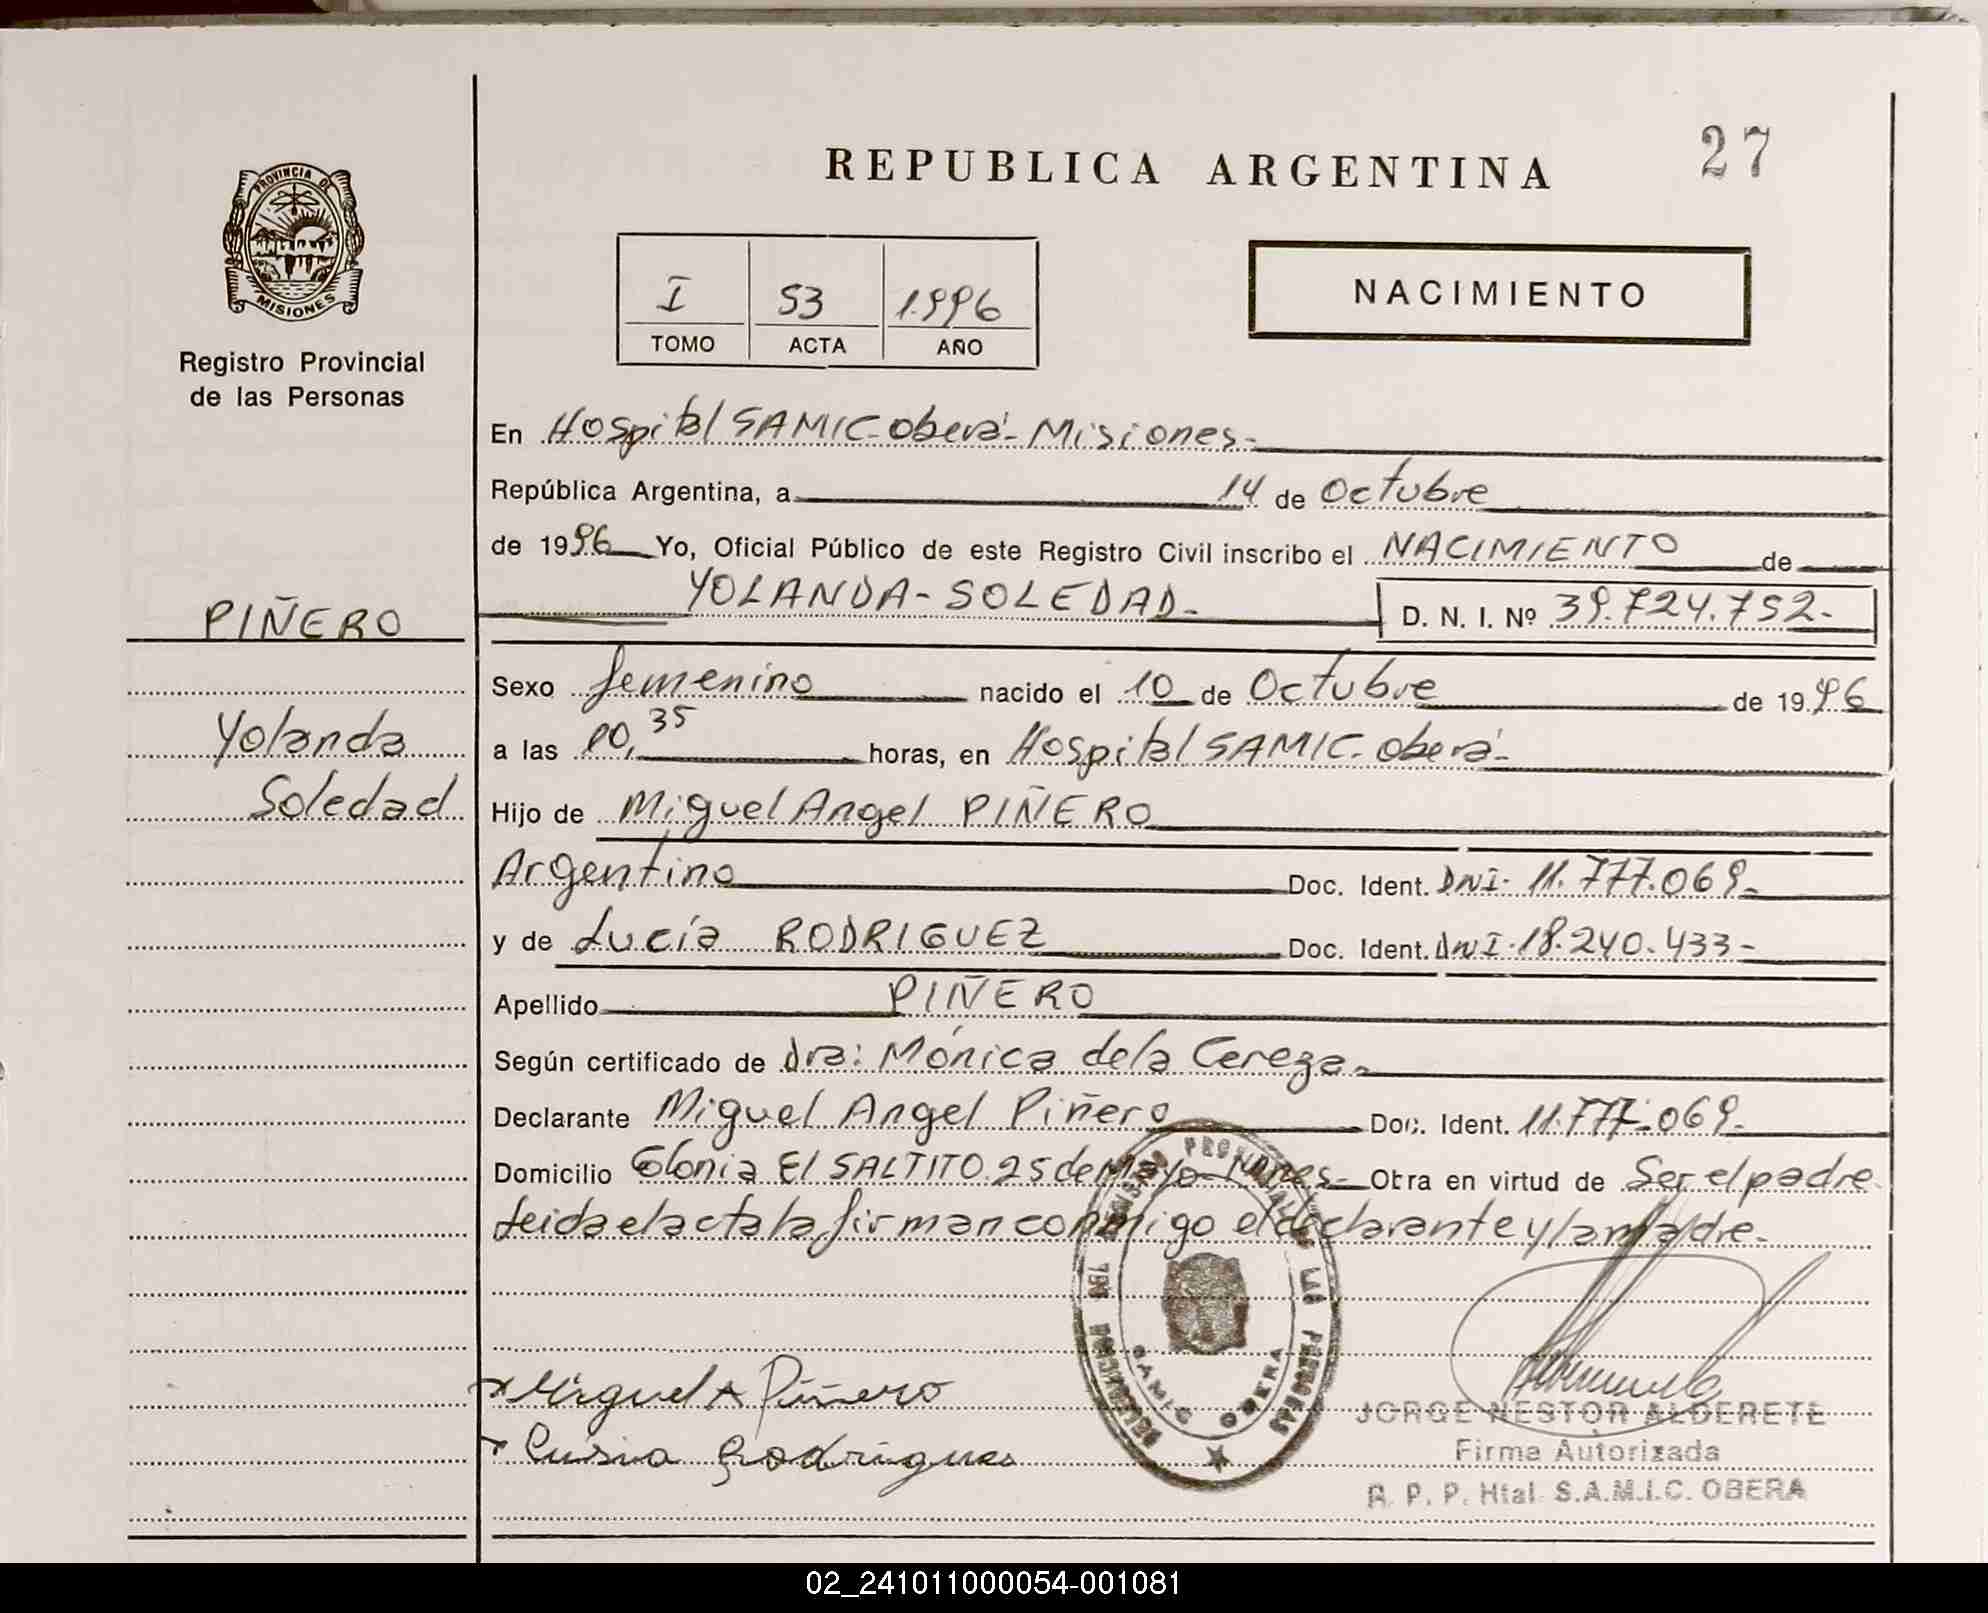 27
REPUBLICA ARGENTINA
PROVINCIA DE
MISIONES
Registro Provincial
de las Personas
I 53 1.996
TOMO ACTA AÑO
NACIMIENTO
En Hospital SAMIC-Oberá-Misiones-
República Argentina, a 14 de Octubre
de 1996 Yo, Oficial Público de este Registro Civil inscribo el NACIMIENTO de
PIÑERO
YOLANDA-SOLEDAD- D. N. I. Nº 39.724.752-
Sexo femenino nacido el 10 de Octubre de 1996
Yolanda
a las 00,35 horas, en Hospital SAMIC-Oberá-
Soledad
Hijo de Miguel Angel PIÑERO
Argentino Doc. Ident. DNI- 11.777.069-
y de Lucía RODRIGUEZ Doc. Ident. DNI-18.240.433-
Apellido PIÑERO
Según certificado de Dra: Mónica de la Cereza-
Declarante Miguel Angel Piñero Doc. Ident. 11.777.069-
Domicilio Colonia El SALTITO.25 de Mayo-Mnes- Obra en virtud de Ser el padre
Leida el acta la firman conmigo el declarante y la madre-
DELEGACION DEL REGISTRO PROVINCIAL DE LAS PERSONAS
SAMIC OBERA
Miguel A Piñero
Lusia Rodrigues
JORGE NESTOR ALDERETE
Firma Autorizada
R. P. P. Htal. S.A.M.I.C. OBERA
02_241011000054-001081